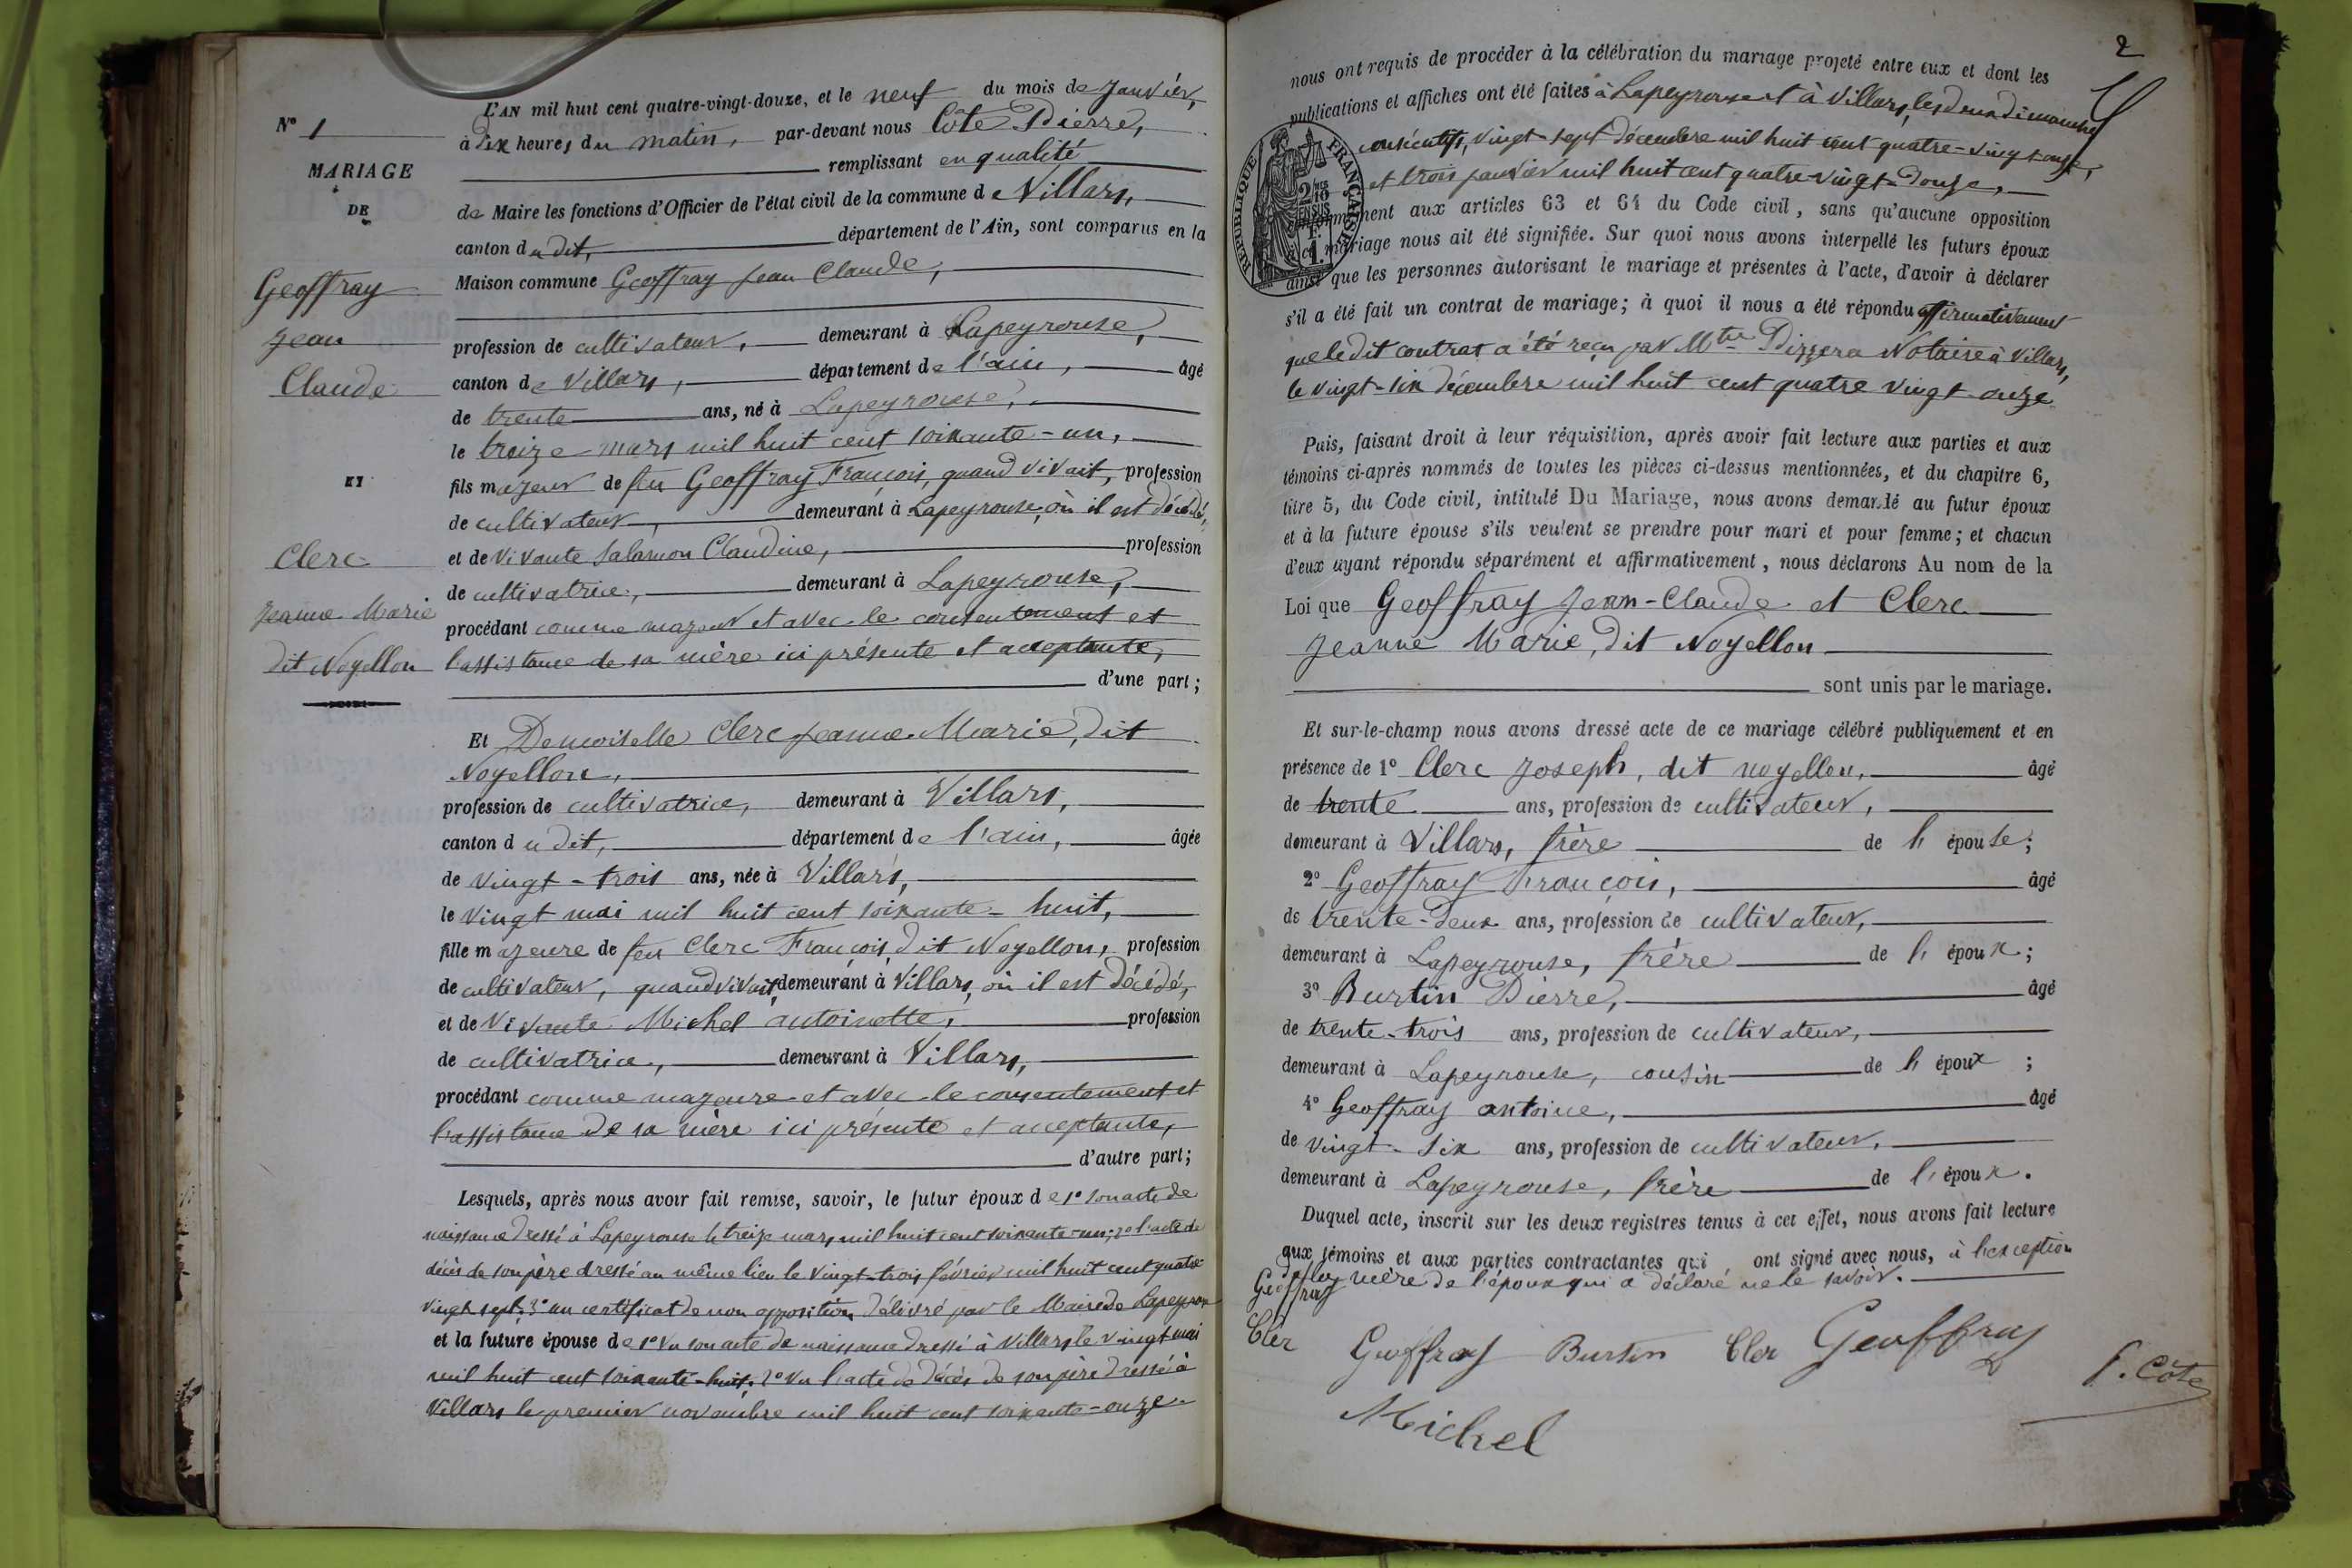 N° 1
MARIAGE
DE
Geoffray
Jean
Claude
ET
Clerc
Jeanne Marie
dit Noyellon
L'AN mil huit cent quatre-vingt-douze, et le neuf du mois de Janvier,
à dix heures du matin, par-devant nous Côte Pierre,
remplissant en qualité
de Maire les fonctions d'Officier de l'état civil de la commune de Villars,
canton du dit, département de l'Ain, sont comparus en la
Maison commune Geoffray Jean Claude,
profession de cultivateur, demeurant à Lapeyrouse,
canton de Villars, département de l'ain, âgé
de trente ans, né à Lapeyrouse,
le treize mars mil huit cent soixante-un,
fils majeur de feu Geoffray François, quand vivait, profession
de cultivateur, demeurant à Lapeyrouse, où il est décédé,
et de vivante Salamon Claudine, profession
de cultivatrice, demeurant à Lapeyrouse,
procédant comme majeur et avec le consentement et
l'assistance de sa mère ici présente et acceptante,
d'une part;
Et Demoiselle Clerc Jeanne Marie, dit
Noyellon,
profession de cultivatrice, demeurant à Villars,
canton du dit, département de l'ain, âgée
de vingt-trois ans, née à Villars,
le vingt mai mil huit cent soixante-huit,
fille majeure de feu Clerc François, dit Noyellon, profession
de cultivateur, quand vivait, demeurant à Villars, où il est décédé,
et de vivante Michel antoinette, profession
de cultivatrice, demeurant à Villars,
procédant comme majeure et avec le consentement et
l'assistance de sa mère ici présente et acceptante,
d'autre part;
Lesquels, après nous avoir fait remise, savoir, le futur époux de 1° son acte de
naissance dressé à Lapeyrouse le treize mars mil huit cent soixante-un; 2° l'acte de
décès de son père dressé au même lieu le vingt-trois février mil huit cent quatre
vingt sept; 3° un certificat de non opposition délivré par le Maire de Lapeyrouse
et la future épouse de 1° Vu son acte de naissance dressé à Villars le vingt mai
mil huit cent soixante-huit; 2° Vu l'acte de décès de son père dressé à
Villars le premier novembre mil huit cent soixante-onze.
2
nous ont requis de procéder à la célébration du mariage projeté entre eux et dont les
publications et affiches ont été faites à Lapeyrouse et à Villars, les deux dimanches
consécutifs, vingt-sept décembre mil huit cent quatre-vingt-onze,
et trois janvier mil huit cent quatre vingt-douze,
conformément aux articles 63 et 64 du Code civil, sans qu'aucune opposition
à ce mariage nous ait été signifiée. Sur quoi nous avons interpellé les futurs époux
ainsi que les personnes autorisant le mariage et présentes à l'acte, d'avoir à déclarer
s'il a été fait un contrat de mariage; à quoi il nous a été répondu affirmativement
que le dit contrat a été reçu par Mtre Pizzera Notaire à Villars,
le vingt-six décembre mil huit cent quatre vingt-onze
RÉPUBLIQUE FRANÇAISE
Puis, faisant droit à leur réquisition, après avoir fait lecture aux parties et aux
témoins ci-après nommés de toutes les pièces ci-dessus mentionnées, et du chapitre 6,
titre 5, du Code civil, intitulé Du Mariage, nous avons demandé au futur époux
et à la future épouse s'ils veulent se prendre pour mari et pour femme; et chacun
d'eux ayant répondu séparément et affirmativement, nous déclarons Au nom de la
Loi que Geoffray Jean-Claude et Clerc
Jeanne Marie, dit Noyellon
sont unis par le mariage.
Et sur-le-champ nous avons dressé acte de ce mariage célébré publiquement et en
présence de 1° Clerc Joseph, dit noyellon, âgé
de trente ans, profession de cultivateur,
demeurant à Villars, frère de l'épouse;
2° Geoffray François, âgé
de trente-deux ans, profession de cultivateur,
demeurant à Lapeyrouse, frère de l'époux;
3° Burtin Pierre, âgé
de trente-trois ans, profession de cultivateur,
demeurant à Lapeyrouse, cousin de l'époux;
4° Geoffray antoine, âgé
de vingt-six ans, profession de cultivateur,
demeurant à Lapeyrouse, frère de l'époux.
Duquel acte, inscrit sur les deux registres tenus à cet effet, nous avons fait lecture
aux témoins et aux parties contractantes qui ont signé avec nous, à l'exception
de la mère de l'époux qui a déclaré ne le savoir.
Geoffray
Cler
Geoffray Burtin Cler Geoffray
P. Côte
Michel